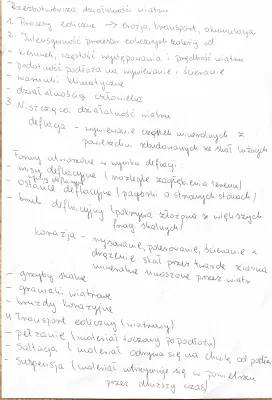 Rzeźbotwórcza działalność wiatru
1. Procesy eoliczne → erozja, transport, akumulacja
2. Intensywność procesów eolicznych zależy od
- kierunek, częstość występowania i prędkość wiatru
- podatność podłoża na wywiewanie i ścieranie
- warunki klimatyczne
- działalnością człowieka
3. Niszcząca działalność wiatru
deflacja - wywiewanie cząstek mineralnych z
powierzchni zbudowanych ze skał luźnych
Formy utworzone w wyniku deflacji
- misy deflacyjne (rozległe zagłębienia terenu)
- ostańce deflacyjne (pagórki o stromych stokach)
- bruk deflacyjny (pokrywa złożona z większych
frag. skalnych)
korazja - rysowanie, polerowanie, ścieranie i
drążenie skał przez twarde ziarna
mineralne unoszone przez wiatr
- grzyby skalne
- graniaki wiatrowe
- bruzdy korazyjne
4. Transport eoliczny (wiatrowy)
- pełzanie (materiał toczony po podłożu)
- saltacja (materiał odrywa się na chwilę od podłoża
- suspensja (materiał utrzymuje się w powietrzu
przez dłuższy czas)